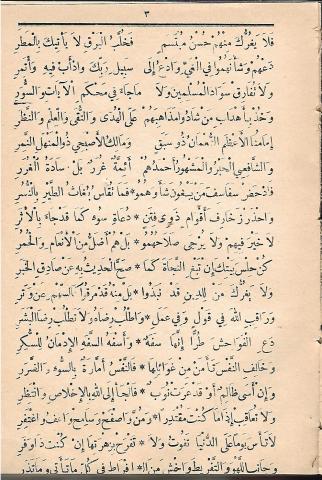 ٣
فلا يغرك منهم حسن مبتسم فخلب البرق لا يأتيك بالمطر
دعهم وشأنهمو في الغي وادع إلى سبيل ربك وادأب فيه وأتمر
ولا تفارق سواد المسلمين ولا ماجاء في محكم الآيات والسور
وخذ بأهداب من شادوا مذاهبهم على الهدى والتقى والعلم والنظر
إمامنا الأعظم النعمان ذو سبق ومالك الأصبحي ذو المنهل النمر
والشافعي الحبر والمشهور أحمدهم أئمة غرر بل سادة الغرر
فادحض سفاسف من يبغون شأوهمو * فما تقاس بغاث الطير بالنسر
واحذر زخارف أقوام ذوى فتن * دعاة سوء كما قد جاء بالأثر
لا خير فيهم ولا يرجى صلاحهمو * بل هم أضل من الأنعام والحمر
كن حلس بيتك إن تبغ النجاة كما * صح الحديث به عن صادق الخبر
ولا يغرك من للدين قد نبذوا * بل منه قد مرقوا كالسهم عن وتر
وراقب الله في قول وفي عمل * واطلب رضاه ولا تطلب رضا البشر
دع الفواحش طرًّا إنها سفه * وأسفه السفه الإدمان للسكر
وخالف النفس تأمن من غوائلها * فالنفس أمارة بالسوء والضرر
وإن أسى ظالم أو قد عرت نوب * فالجأ إلى الله بالإخلاص وانتظر
ولا تعاقب إذا ما كنت مقتدرا * ومن واصفح وسامح واعف واغتفر
لا تأس يوما على الدنيا تفوت ولا * تفرح بزهرتها إن كنت ذا وفر
وجانب اللهو والتفريط واخش من الـ * إفراط في كل ما تأتي وما تذر